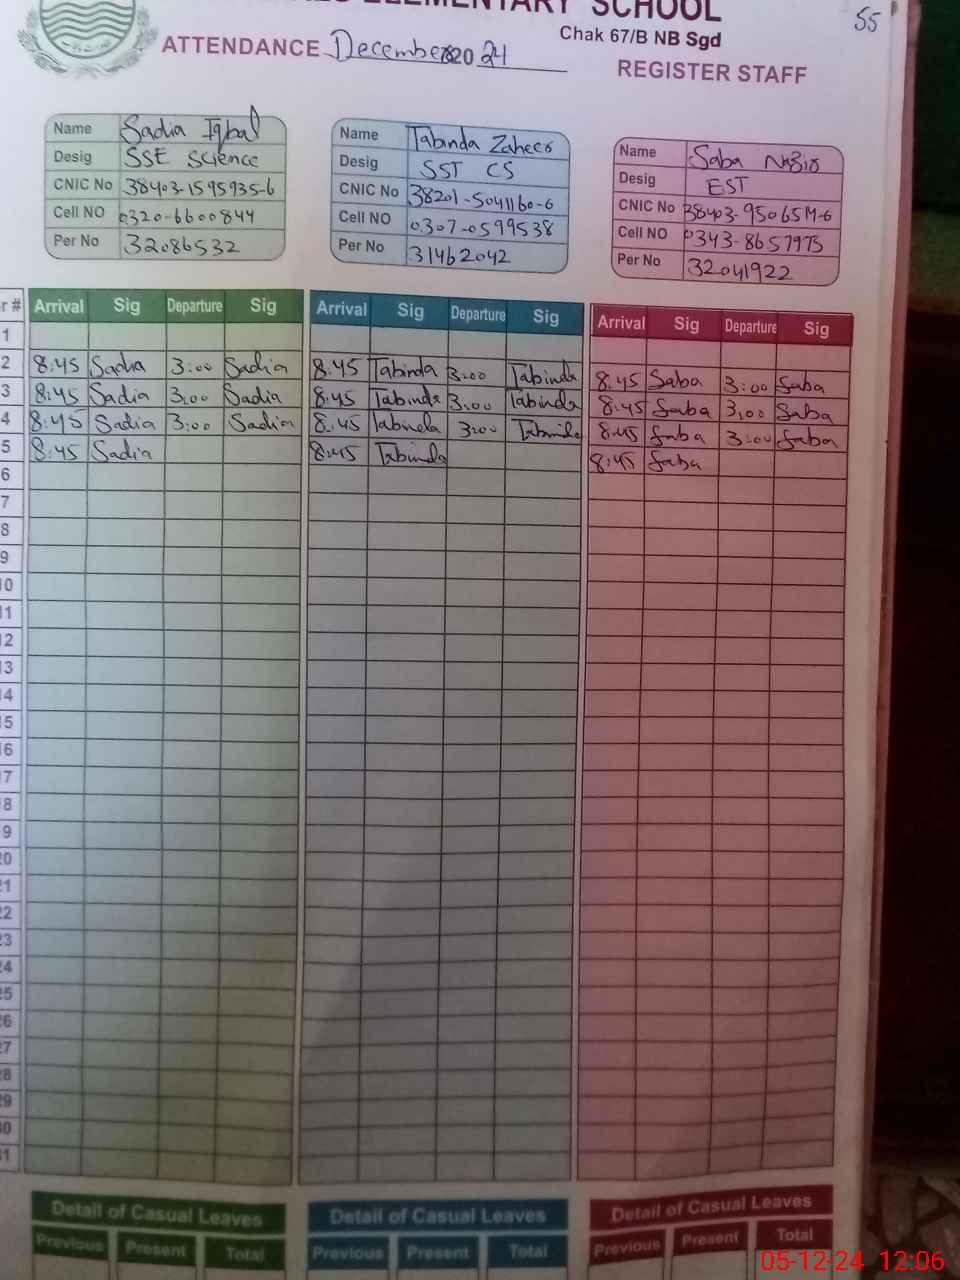 ELEMENTARY SCHOOL
55
Chak 67/B NB Sgd
ATTENDANCE December 2024
REGISTER STAFF
Name Sadia Iqbal
Desig SSE Science
CNIC No 38403-1595935-6
Cell NO 0320-6600844
Per No 32086532
Name Tabinda Zaheer
Desig SST CS
CNIC No 38201-5041160-6
Cell NO 0307-0599538
Per No 31462042
Name Saba Nazir
Desig EST
CNIC No
Cell NO 0343-8657975
Per No 32041922
r # Arrival Sig Departure Sig Arrival Sig Departure Sig Arrival Sig Departure Sig
1
2 8:45 Sadia 3:00 Sadia 8:45 Tabinda 3:00 Tabinda 8:45 Saba 3:00 Saba
3 8:45 Sadia 3:00 Sadia 8:45 Tabinda 3:00 Tabinda 8:45 Saba 3:00 Saba
4 8:45 Sadia 3:00 Sadia 8:45 Tabinda 3:00 Tabinda 8:45 Saba 3:00 Saba
5 8:45 Sadia 8:45 Tabinda 8:45 Saba
6
7
8
9
10
11
12
13
14
15
16
17
18
19
20
21
22
23
24
25
26
27
28
29
30
31
Detail of Casual Leaves Detail of Casual Leaves Detail of Casual Leaves
Previous Present Total Previous Present Total Previous Present Total
05-12-24 12:06